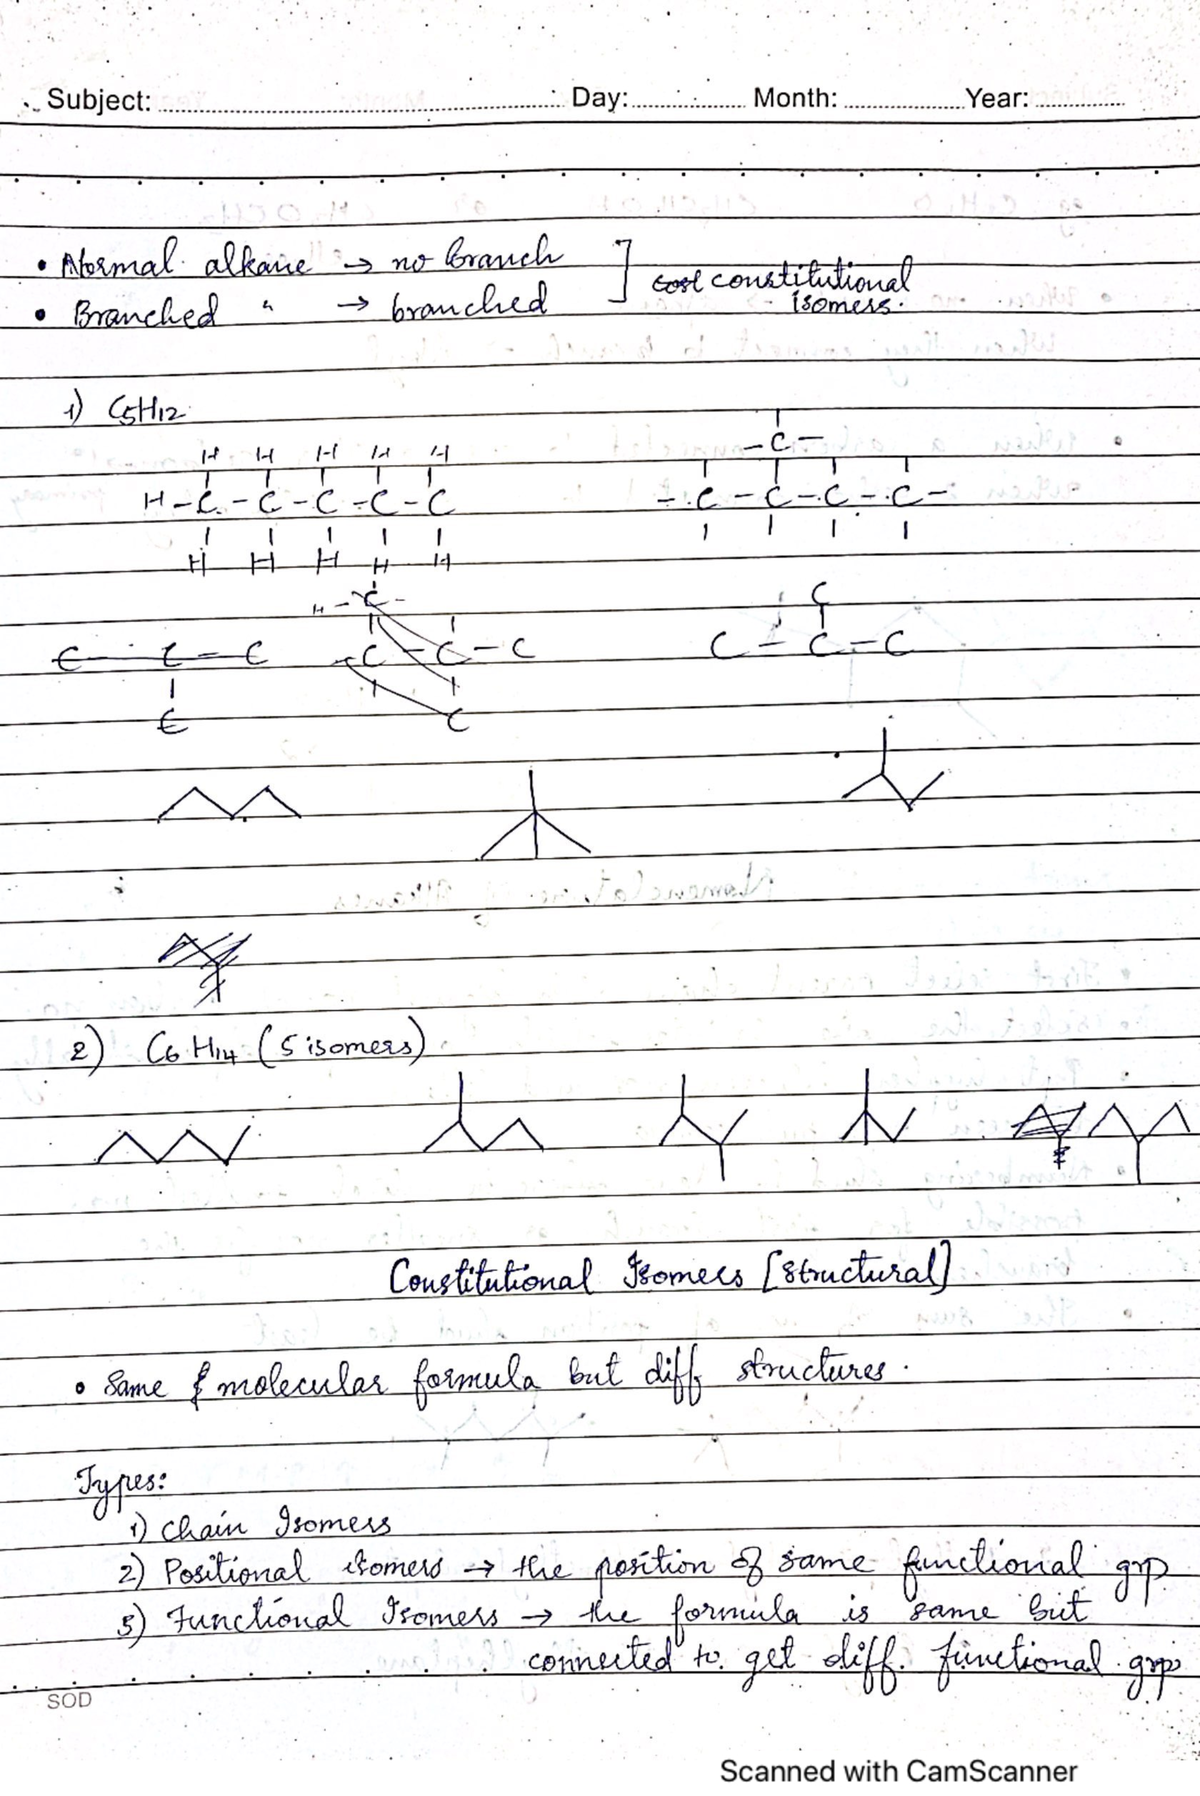 Subject: Day: Month: Year:
• Normal alkane → no branch
• Branched " → branched
constitutional
isomers.
1) C5H12
H H H H H
H-C-C-C-C-C
H H H H H
-C-
-C-C-C-C-
H-C-
C-C-C
C-C-C
C
C
C
C-C-C
2) C6H14 (5 isomers)
Constitutional Isomers [structural]
• Same molecular formula but diff structures.
Types:
1) Chain Isomers
2) Positional isomers → the position of same functional grp
3) Functional Isomers → the formula is same but
connected to get diff. functional grps
SOD
Scanned with CamScanner